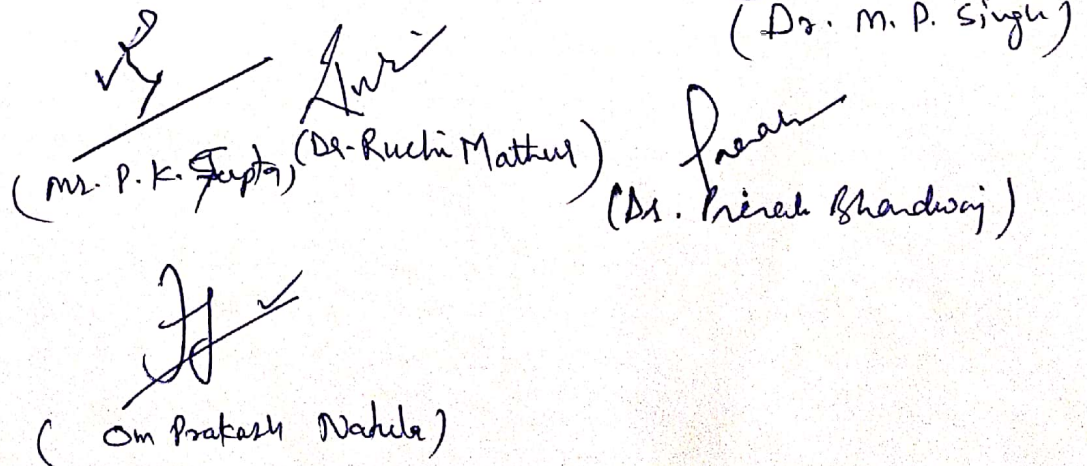 (Dr. M. P. Singh)
(Mr. P. K. Gupta)
(Dr. Ruchi Mathur)
(Dr. Prerak Bhardwaj)
(Om Prakash)